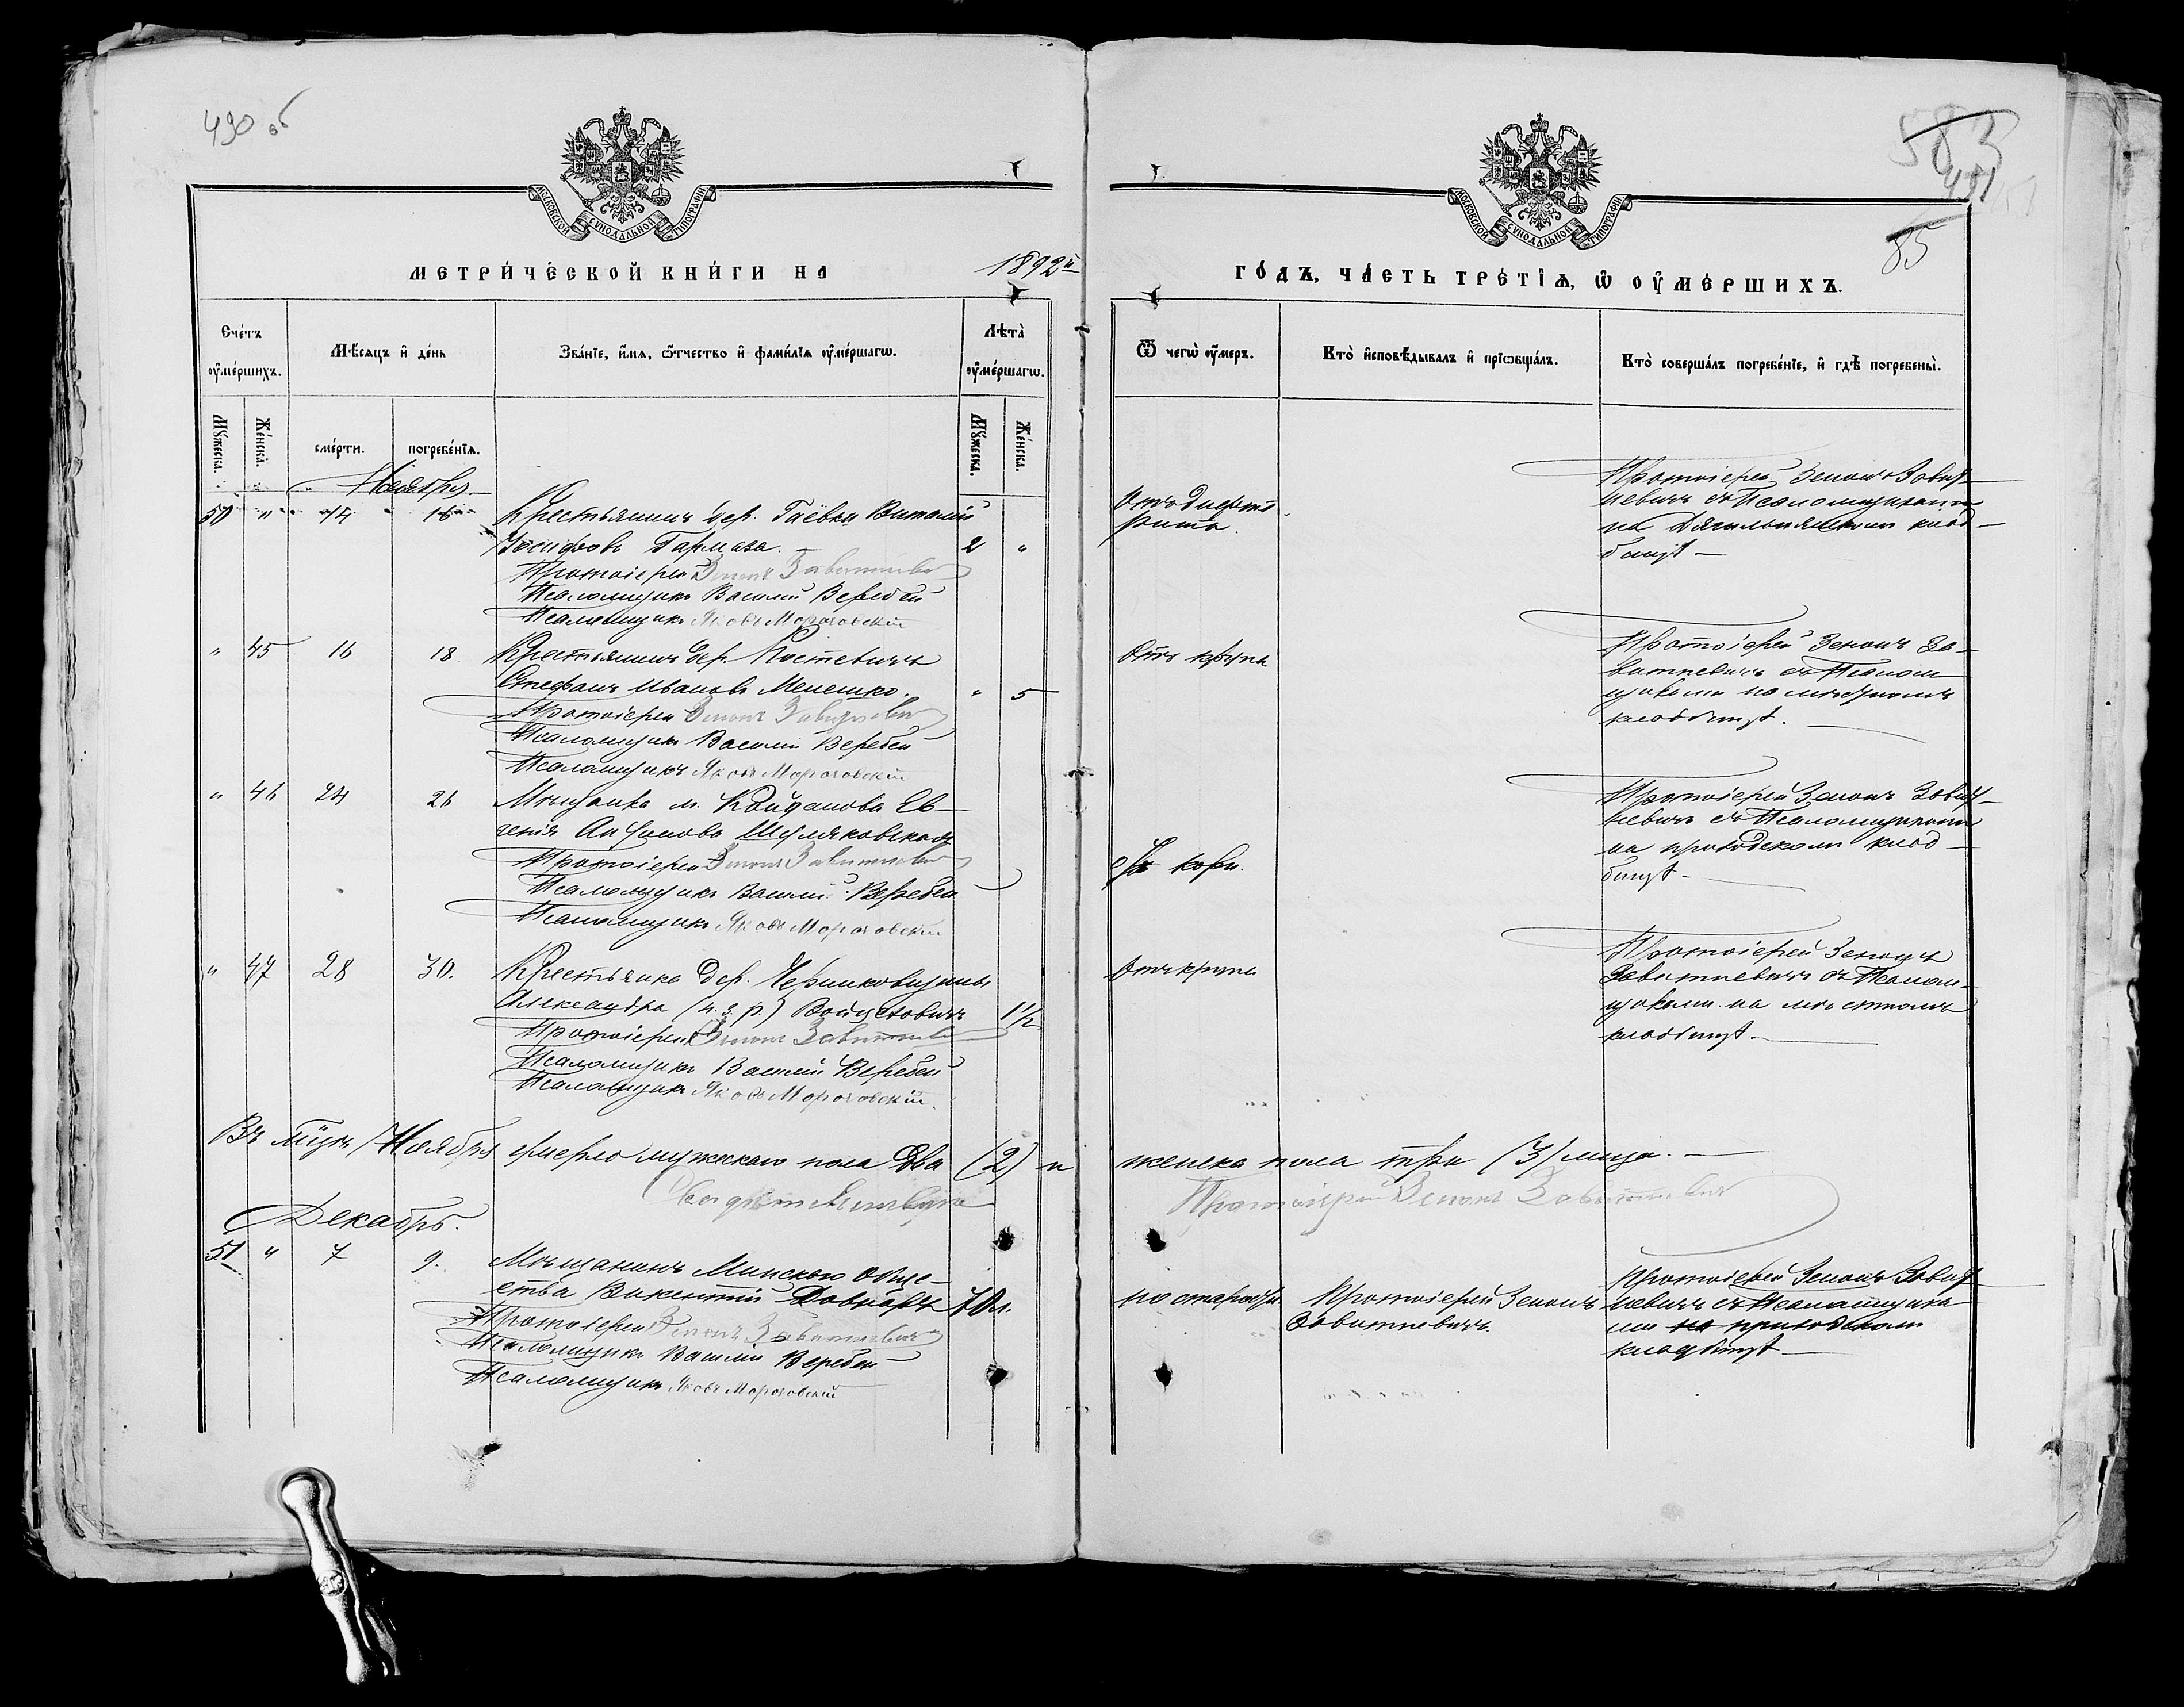 490 об
583
491
85
МОСКОВСКОЙ СѴНОДАЛЬНОЙ ТИПОГРАФІИ
МОСКОВСКОЙ СѴНОДАЛЬНОЙ ТИПОГРАФІИ
МЕТРИ́ЧЕСКОЙ КНИ́ГИ НА 1892й
ГО́ДЪ, ЧА́СТЬ ТРЕ́ТІѦ, Ѡ҆ ОУ҆МЕ́РШИХЪ.
Сче́тъ оу҆ме́ршихъ.
Мѣ́сяцъ и҆ де́нь
Зва́нїе, и҆́мѧ, ѻ҆́тчество и҆ фами́лїѧ оу҆ме́ршагѡ.
Лѣ̑та оу҆ме́ршагѡ.
Ѿ чегѡ̀ оу҆́меръ.
Кто̀ и҆сповѣ́дывалъ и҆ прїѡбща́лъ.
Кто̀ соверша́лъ погребе́нїе, и҆ гдѣ̀ погребены̀.
Мꙋ́жеска.
Же́нска.
сме́рти.
погребе́нїѧ.
Мꙋ́жеска.
Же́нска.
Ноябрь
50 " 14 16 Крестьянинъ дер. Гаевки Виталій
Іосифовъ Гармаза. 2 "
Протоіерей Зенонъ Завитневичъ
Псаломщикъ Василій Веребей
Псаломщикъ Яковъ Мороговскій
Отъ дифте
рита.
Протоіерей Зенонъ Завит-
невичъ съ Псаломщиками
на кладбищѣ
" 45 16 18 Крестьянинъ дер. Костевичъ
Стефанъ Ивановъ Мелешко. " 5
Протоіерей Зенонъ Завитневичъ
Псаломщикъ Василій Веребей
Псаломщикъ Яковъ Мороговскій
Отъ крупа
Протоіерей Зенонъ За-
витневичъ съ Псалом
щиками на мѣстномъ
кладбищѣ.
" 46 24 26 Мѣщанка м. Койданова Ев-
генія Антонова Шуляковская
Протоіерей Зенонъ Завитневичъ
Псаломщикъ Василій Веребей
Псаломщикъ Яковъ Мороговскій
Отъ кори.
Протоіерей Зенонъ Завит-
невичъ съ Псаломщиками
на приходскомъ клад-
бищѣ
" 47 28 30. Крестьянка дер. Черниковщины
Александра (н. з. р.) Войцеховичъ 1½
Протоіерей Зенонъ Завитневичъ
Псаломщикъ Василій Веребей
Псаломщикъ Яковъ Мороговскій.
Отъ крупа
Протоіерей Зенонъ
Завитневичъ съ Псалом-
щиками на мѣстномъ
кладбищѣ.
Въ м-цѣ Ноябрѣ умерло мужскаго пола два (2) и женска пола три (3) лица.
Протоіерей Зенонъ Завитневичъ
Декабрь.
51 " 7 9. Мѣщанинъ Минскаго обще-
ства Викентій Довнаръ 70 л.
Протоіерей Зенонъ Завитневичъ
Псаломщикъ Василій Веребей
Псаломщикъ Яковъ Мороговскій
по старости
Протоіерей Зенонъ
Завитневичъ.
Протоіерей Зенонъ Завит
невичъ съ Псаломщика
ми на приходскомъ
кладбищѣ